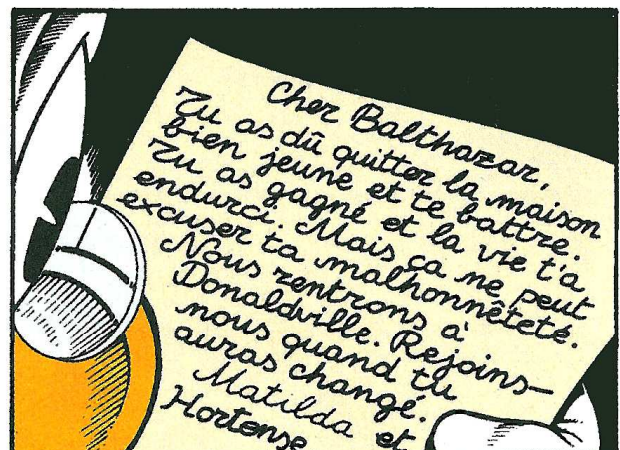 Cher Balthazar,
Tu as dû quitter la maison
bien jeune et te battre.
Tu as gagné et la vie t'a
endurci. Mais ça ne peut
excuser ta malhonnêteté.
Nous rentrons à
Donaldville. Rejoins-
nous quand tu
auras changé.
Matilda et
Hortense